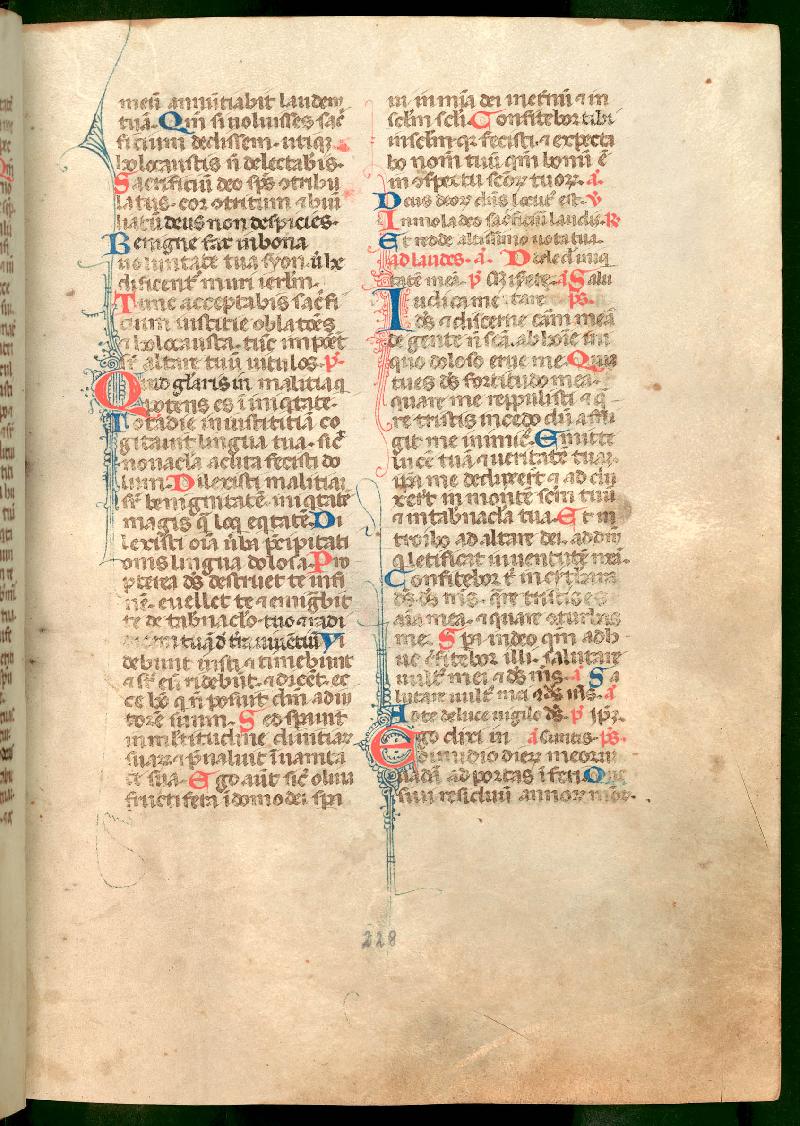 meū annūtiabit laudem
tuā. Qm̄ si uoluisses sac̄
ficium dedissem utiqꝫ
holocaustis n̄ delectabis.
Sacrificiū deo sp̄s ꝯtribu
latus. cor ꝯtritum ⁊ hui
liatū deus non despicies.
Benigne fac in bona
uoluntate tua syon. ūt he
dificent̄ muri ierlm̄.
Tunc acceptabis sac̄fi
cium iusticie oblatōes
⁊ holocausta. tūc īmpōēt
sr̄ altare tuū uitulos. p̄.
Quid gl̄aris in malitia q̄
potens es ī iniq̄tate.
Tota die iniustitiā co
gitauit lingua tua. sic̄
nouacl̄a acuta fecisti do
lum. Dilexisti malitiā
sr̄ benignitatē. iniq̄tatē
magis q̄ loq̄ eq̄tatē. Di
lexisti oīa ūba p̄cipitati
onis lingua dolosa. Pro
pterea ds̄ destruet te in fi
nē. euellet te ⁊ emigͣbit
te de tabnaclō tuo ⁊ radi
tuā d̄ tr̄a uiuētiū Vi
debunt iusti ⁊ timebunt
⁊ sr̄ eū ridebūt. ⁊ dicēt. ec
ce hō q̄ n̄ posuit dm̄ adiu
torē suum. Sed spauit
in mltitudine diuitiaꝝ
suaꝝ ⁊ p̄ualuit ī uanita
te sua. Ego aūt sic̄ oliua
fructifera ī domo dei. spa
ui in mīa dei mei ī et̄nū ⁊ in
sclm̄ scli. Confitebor tibi
in sclm̄ qꝛ fecisti. ⁊ expecta
bo nom̄ tuū qm̄ bonū ē
in ꝯspectu scōꝝ tuoꝝ. a.
Deus deoꝝ dn̄s locut̄ est. v̄
Immola deo sac̄ficiū laudis. R
Et redde altissimo uota tua.
ad laudes. a. Dele dn̄e iniq̄
tatē meā. p̄ Miserē. a Salu
Iudica me tare p̄s.
ds̄ ⁊ discerne cām meā
de gente n̄ scā. ab hoīe ini
quo ⁊ doloso erue me. Quia
tu es ds̄ fortitudo mea.
quare me reppulisti ⁊ q̄
re tristis incedo dū affli
git me inimic̄. Emitte
lucē tuā ⁊ ueritatē tuā.
ipa me deduxer̄t ⁊ ad du
xer̄t in montē scm̄ tuū
⁊ in tabnacla tua. Et in
troibo ad altare dei. ad dm̄
q̄ letificat iuuentutē meā.
Confitebor t̄ in cythara
ds̄ ds̄ ms̄. q̄re tristis es
aīa mea. ⁊ quare ꝯturbas
me. Spa in deo qm̄ adh
uc ꝯfitebor illi. salutare
uult̄ mei ⁊ ds̄ ms̄. a Sa
lutare uult̄ mei ⁊ ds̄ ms̄. a
Ad te de luce uigilo ds̄. p̄ ip̄ꝝ.
Ego dixi in a Cunctis. p̄s.
dimidio dieꝝ meoruꝫ
uadā ad portas īferi. Que
siui residuū annoꝝ meoꝝ.
228